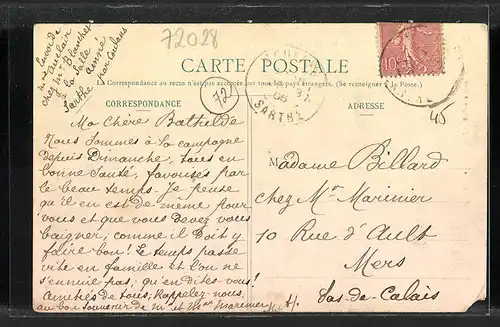 Envoi de
Mme Auclair
chez Mr Blanchet
à la Salle
Sarthe par Coulans
72028
CARTE POSTALE
La Correspondance au recto n'est pas acceptée par tous les pays étrangers. (Se renseigner à la Poste.)
72
SARTHE
10
45
CORRESPONDANCE
ADRESSE
Ma Chère Bathilde
Nous sommes à la campagne
depuis Dimanche, tous en
bonne santé, favorisés par
le beau temps. Je pense
qu'il en est de même pour
vous et que vous devez vous
baigner; comme il doit y
faire bon! Le temps passe
vite en famille et l'on ne
s'ennuie pas; qu'en dites-vous!
Amitiés de tous; Rappelez nous
au bon souvenir de Mr et Mme Marinier
Madame Billard
chez Mr Marinier
10 Rue d'Ault
Mers
Pas-de-Calais